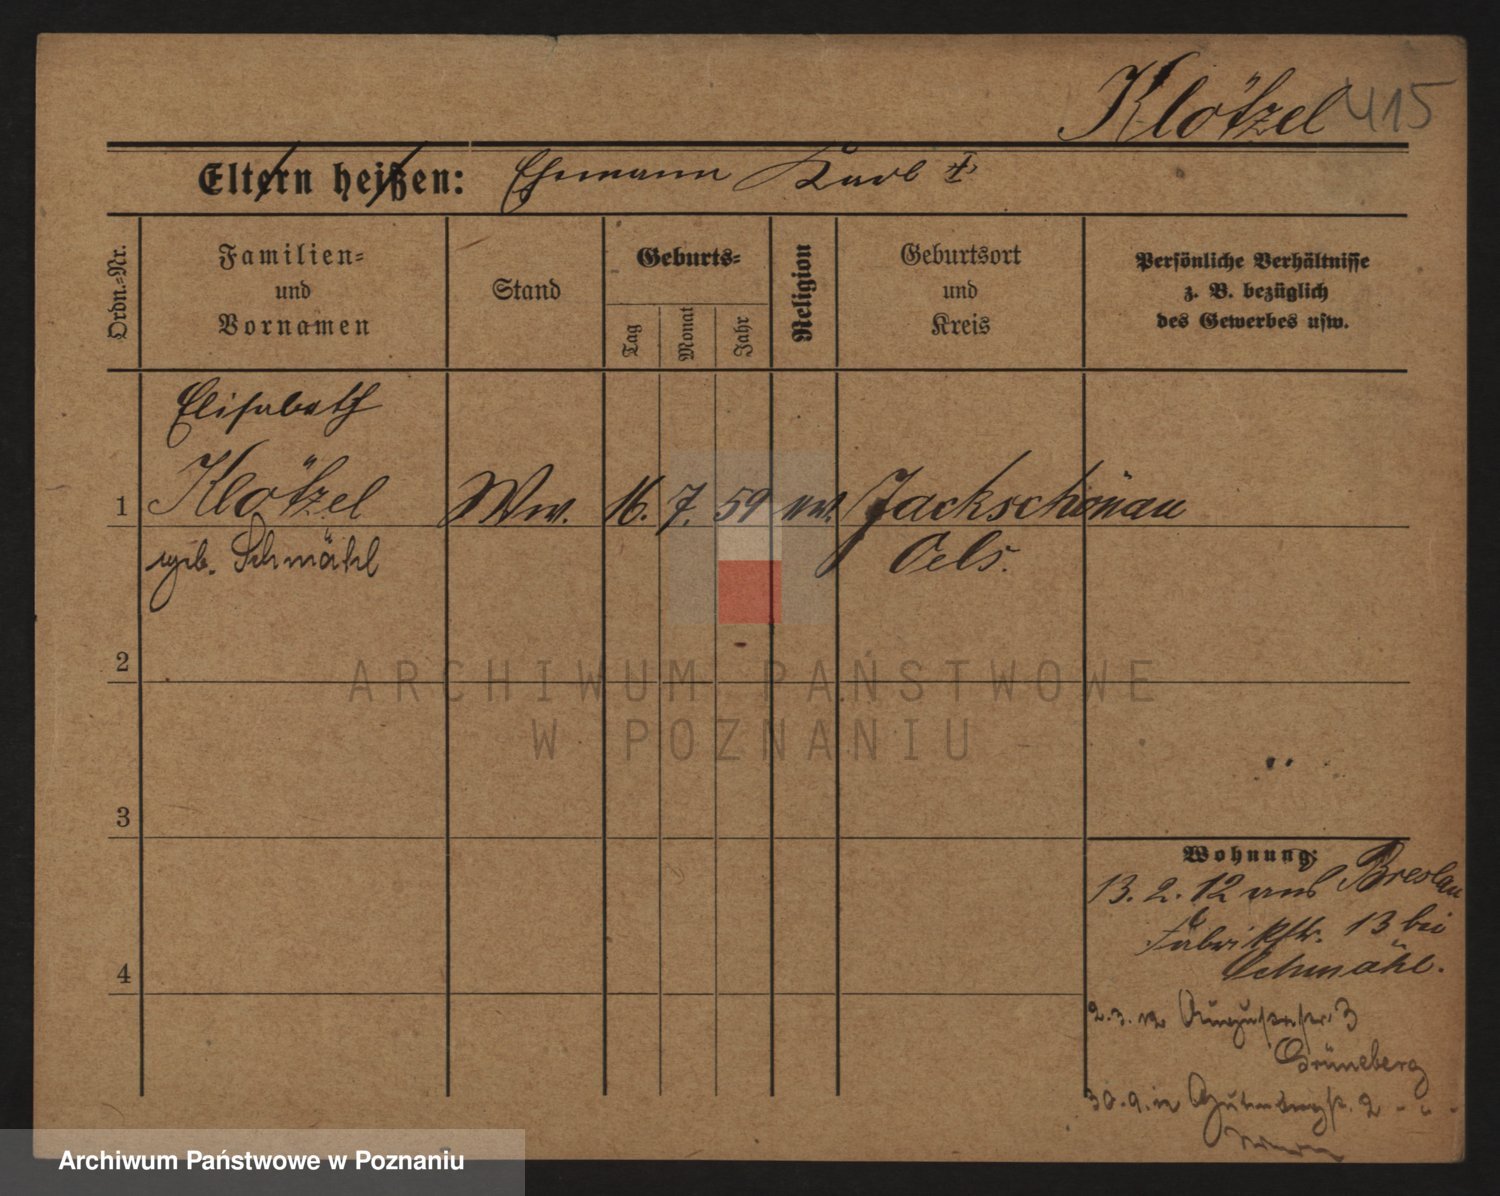 Klötzel 415
Eltern heißen: Ehemann Karl †
Ordn.-Nr.
Familien-
und
Vornamen
Stand
Geburts-
Tag
Monat
Jahr
Religion
Geburtsort
und
Kreis
Persönliche Verhältnisse
z. B. bezüglich
des Gewerbes usw.
Elisabeth
1 Klötzel Ww. 16. 7. 59 Jackschönau
geb. Schmähl Oels.
2
3
4
Wohnung:
13. 2. 12 aus Breslau
Fabrikstr. 13 bei
Schmähl.
2.3.12 Augustastr. 3
Grüneberg
30.9.12 Gutenbergstr. 2 - " -
ARCHIWUM PAŃSTWOWE
W POZNANIU
Archiwum Państwowe w Poznaniu